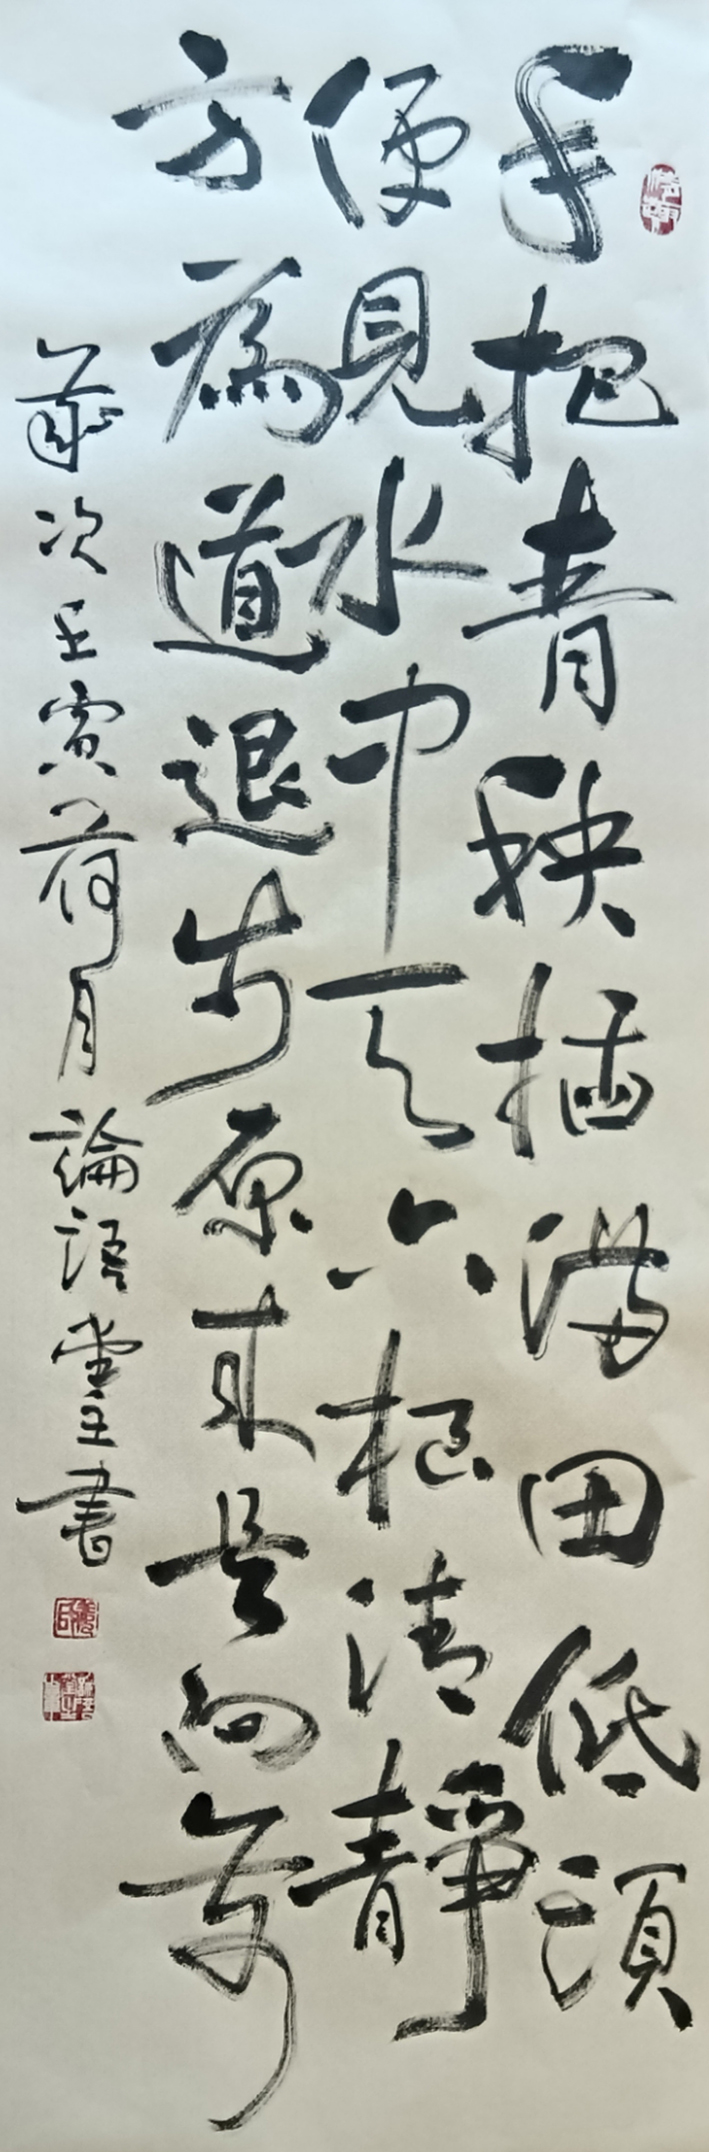 手把青秧插满田低頭
便見水中天六根清靜
方為道退步原來是向前
歲次壬寅荷月論語堂主書